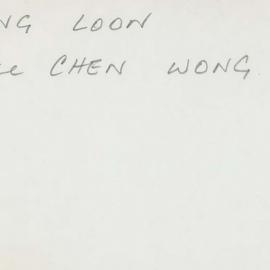 NG LOON
CHEN WONG